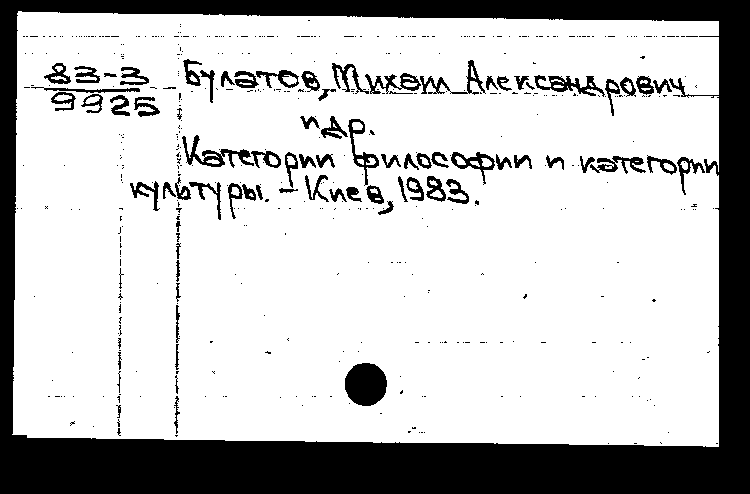 83-3
9925
Булатов, Михаил Александрович
и др.
Категории философии и категории
культуры. – Киев, 1983.